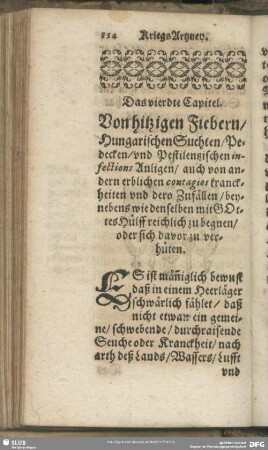 114 KriegsArtzney.
Das vierdte Capitel.
Von hitzigen Fiebern/
Hungarischen Suchten/Pe-
decken/vnd Pestilentzischen in-
fections Anligen/ auch von an-
dern erblichen contagios kranck-
heiten vnd dero Zufällen/ bey-
nebens wie denselben mit GOt-
tes Hülff reichlich zu begnen/
oder sich davor zu ver-
hüten.
ES ist män̄iglich bewust
daß in einem Heerläger
schwärlich fählet/ daß
nicht etwan ein gemei-
ne/ schwebende/ durchraisende
Seuche oder Kranckheit/ nach
arth deß Lands/Wassers/Lufft
vnd
SLUB
DFG